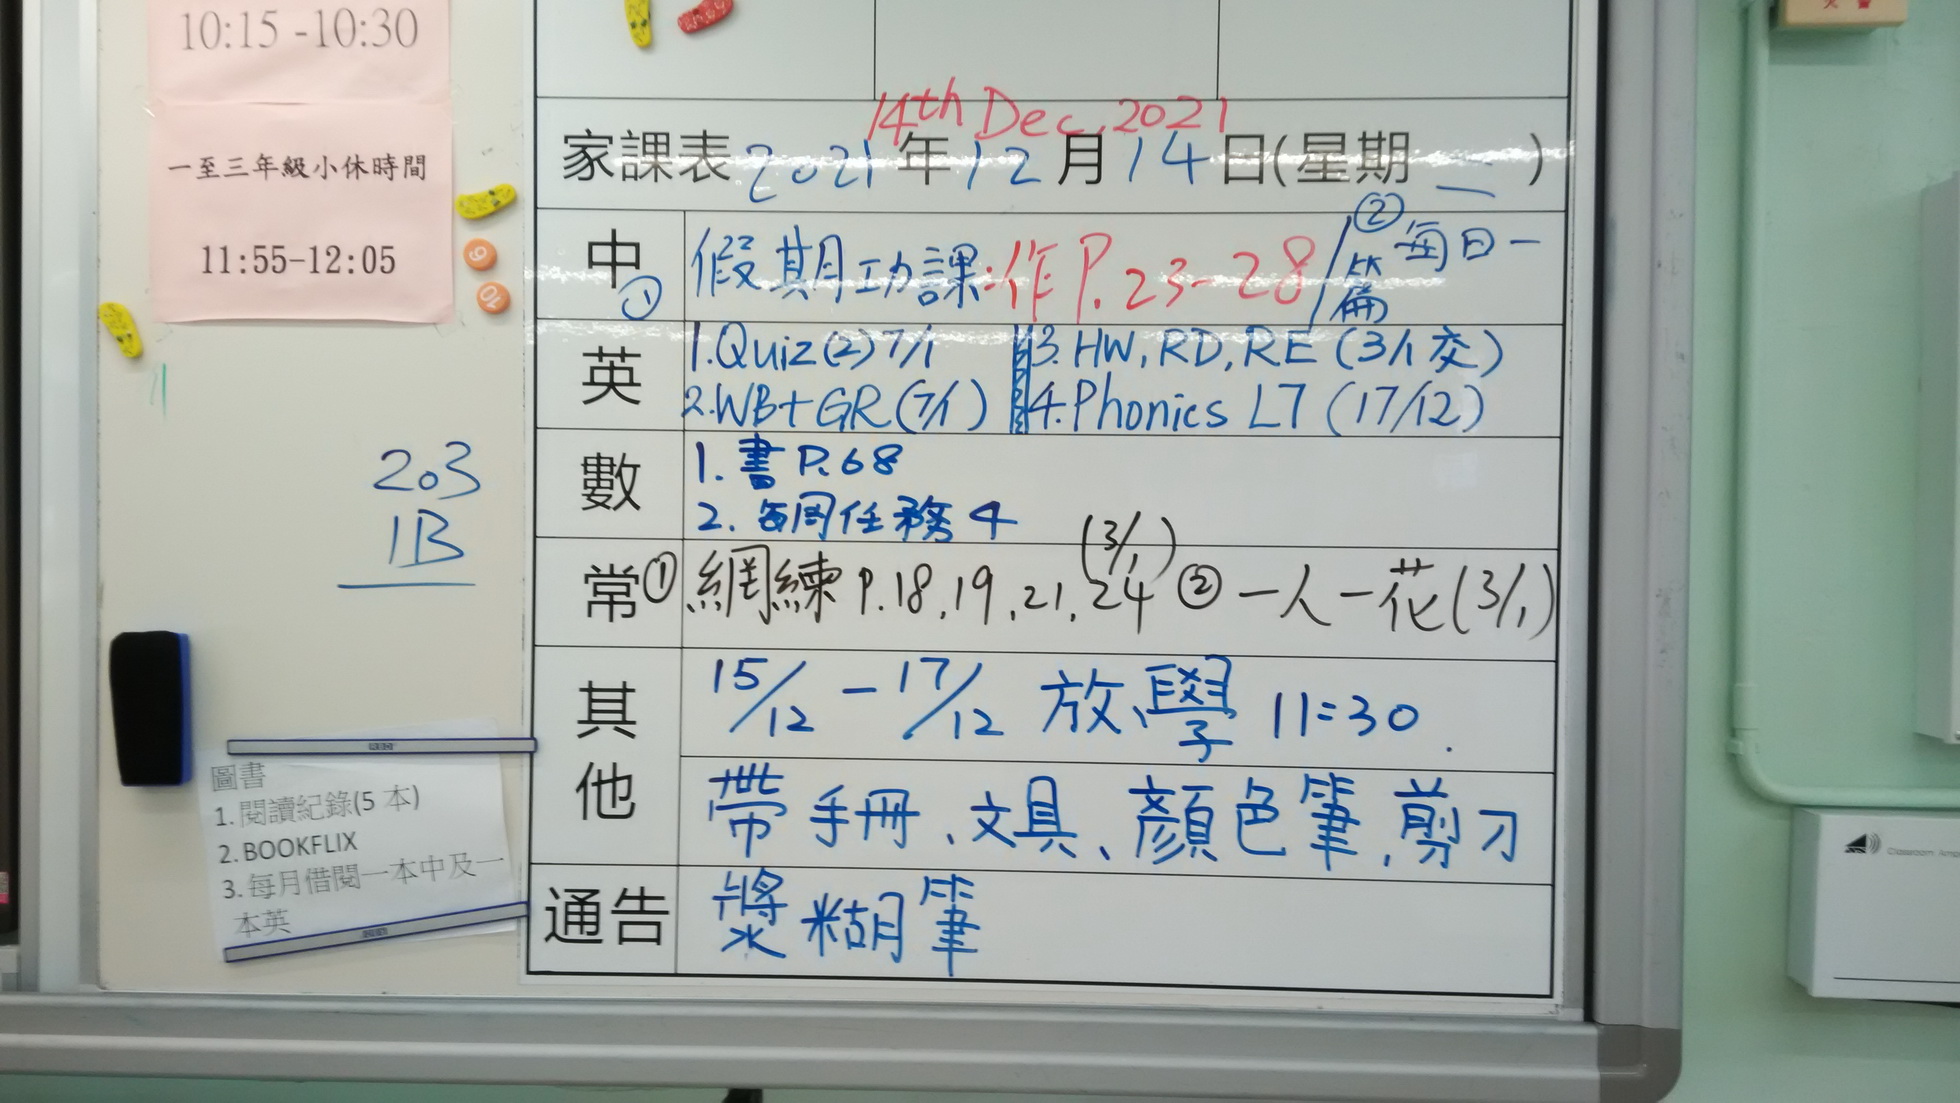 10:15 -10:30
一至三年級小休時間
11:55-12:05
9
10
203
1B
圖書
1.閱讀紀錄(5 本)
2.BOOKFLIX
3.每月借閱一本中及一
本英
14th Dec, 2021
家課表 2021 年 12 月 14 日(星期 二 )
中 ① 假期功課:作 P. 23-28 / ② 每日一
篇
英 1.Quiz(2) 7/1 3. HW, RD, RE (3/1 交)
2.WB+GR(7/1) 4.Phonics L7 (17/12)
數 1. 書 P.68
2. 每周任務 4
(3/1)
常 ① 網練 P.18,19,21,24 ② 一人一花(3/1)
其他 15/12 - 17/12 放學 11:30.
帶手冊、文具、顏色筆,剪刀
通告 漿糊筆
Classroom